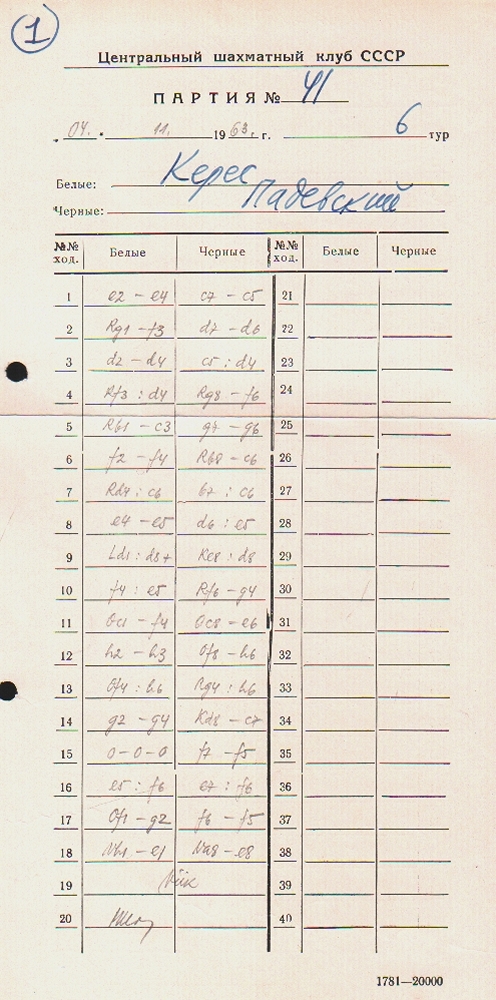 1
Центральный шахматный клуб СССР
ПАРТИЯ № 41
„ 04. “ 11. 1963. г. 6 тур
Белые: Керес
Черные: Падевский
№№ ход. Белые Черные №№ ход. Белые Черные
1 e2 – e4 c7 – c5 21
2 Rg1 – f3 d7 – d6 22
3 d2 – d4 c5 : d4 23
4 Rf3 : d4 Rg8 – f6 24
5 Rb1 – c3 g7 – g6 25
6 f2 – f4 Rb8 – c6 26
7 Rd4 : c6 b7 : c6 27
8 e4 – e5 d6 : e5 28
9 Ld1 : d8+ Ke8 : d8 29
10 f4 : e5 Rf6 – g4 30
11 Oc1 – f4 Oc8 – e6 31
12 h2 – h3 Of8 – h6 32
13 Of4 : h6 Rg4 : h6 33
14 g2 – g4 Kd8 – c7 34
15 0–0–0 f7 – f5 35
16 e5 : f6 e7 : f6 36
17 Of1 – g2 f6 – f5 37
18 Vh1 – e1 Va8 – e8 38
19 Viik 39
20 40
1781—20000